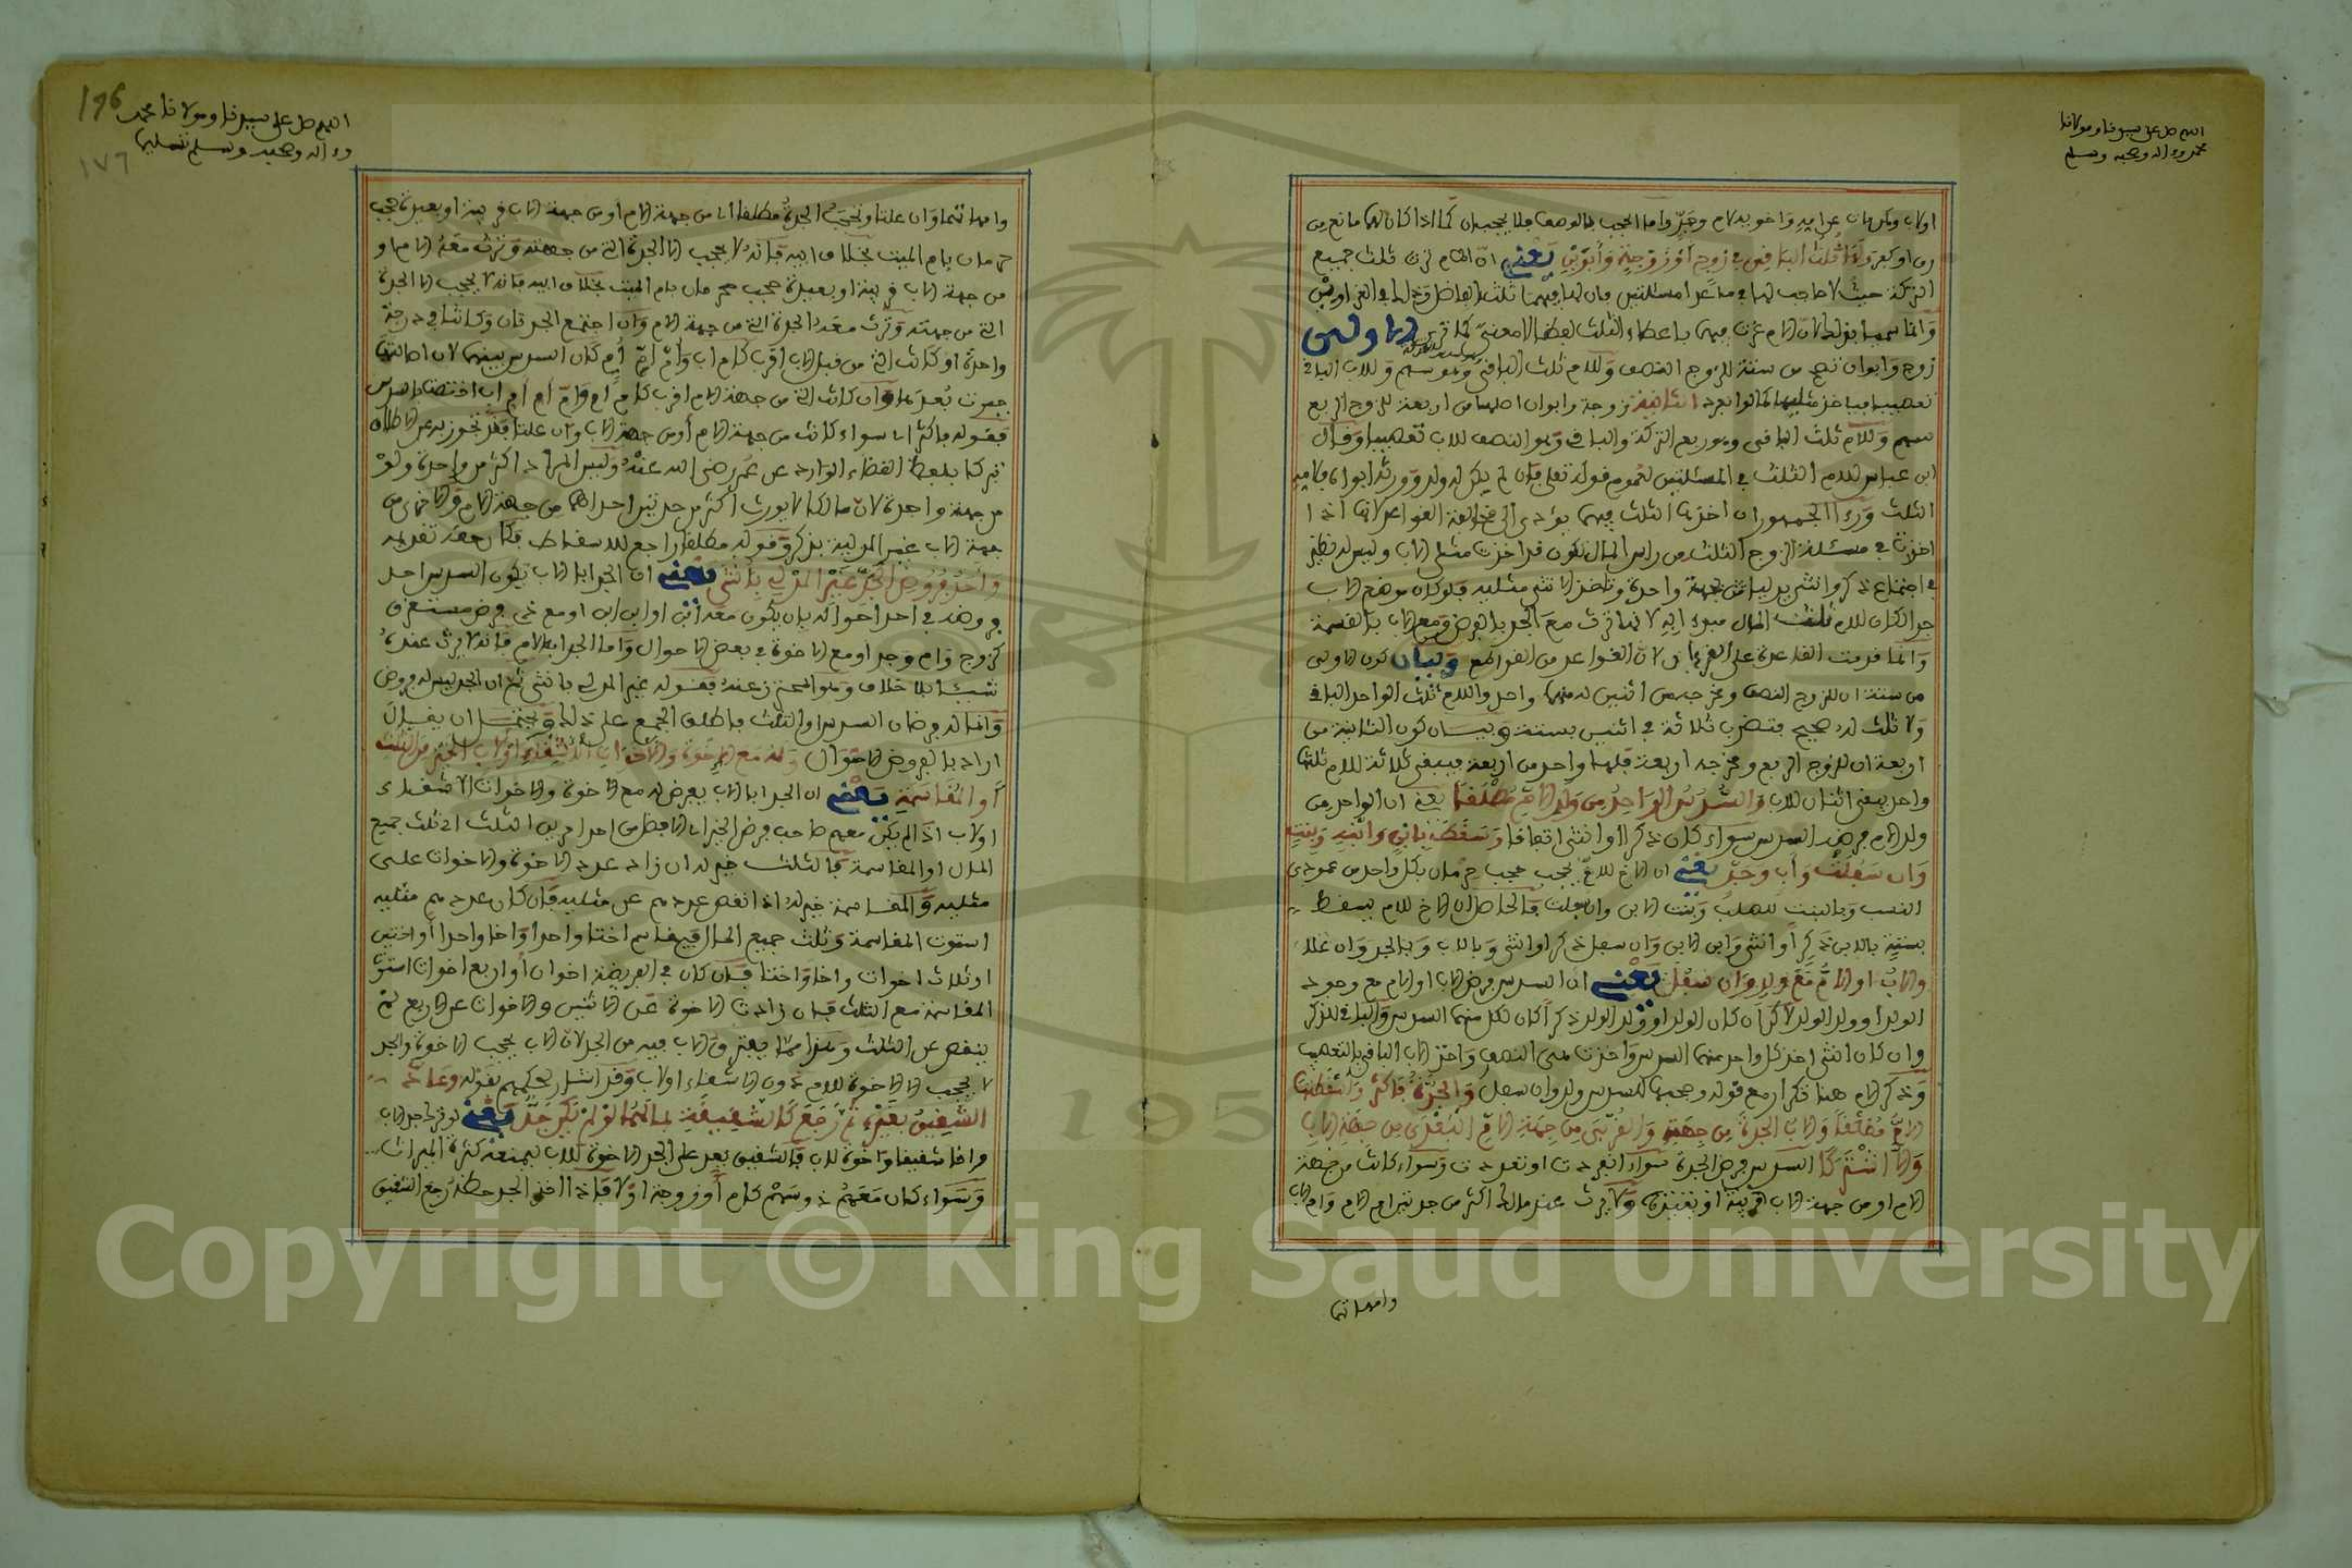 اللهم صل على سيدنا ومولانا
محمد وءاله وصحبه وسلم
اولاب ويكونان عن ابيه واخويه لام وجد واما الحجب بالوصف فلا يحجبان كما اذا كان لهما مانع من
رق او كفر ولها ثلث الباقي في زوج او زوجة وأبوين يعني ان الام ترث ثلث جميع
التركة حيث لا حاجب لها في ما عدا مسئلتين فان لها فيهما ثلث الفاضل وتدعى الغراوين
وانما سميا بذلك لان الام غرت فيهما باعطاء الثلث لفظا لا معنى كما قرر الاولى
زوج وابوان تصح من ستة للزوج النصف وللام ثلث الباقي وهو سهم وللاب الباقي
تعصيبا فياخذ مثليها كما لو انفرد الثانية زوجة وابوان اصلها من اربعة للزوجة الربع
سهم وللام ثلث الباقي وهو ربع التركة والباقي وهو النصف للاب تعصيبا وقال
ابن عباس للام الثلث في المسئلتين لعموم قوله تعلى فان لم يكن له ولد وورثه ابواه فلامه
الثلث ورءا الجمهور ان اخذها الثلث فيهما يؤدي الى مخالفة القواعد لانها اذا
اخذت في مسئلة الزوج الثلث من راس المال تكون قد اخذت مثلي الاب وليس له نظير
في اجتماع ذكر وانثى يدليان بجهة واحدة وتاخذ الانثى مثليه فلو كان موضع الاب
جد لكان للام ثلث المال
وانما قدمت القاعدة على القرءان لان القواعد من القواطع وبيان كون الاولى
من ستة ان للزوج النصف ومخرجه من اثنين له منهما واحد وللام ثلث الواحد الباقي
ولا ثلث له صحيح فتضرب ثلاثة في اثنين بستة وبيان كون الثانية من
اربعة ان للزوجة الربع ومخرجه اربعة فلها واحد من اربعة فيبقى ثلاثة للام ثلثها
واحد يبقى اثنان للاب والسدس للواحد من ولد الام مطلقا يعني ان الواحد من
ولد الام فرضه السدس سواء كان ذكرا او انثى اتفاقا وسقط بابن وابنه وبنت
وان سفلت وأب وجد يعني ان الاخ للام يحجب حجب حرمان بكل واحد من عمودي
النسب وبالبنت للصلب وبنت الابن وان سفلت والحاصل ان الاخ للام يسقط
بستة بالابن ذكرا أو انثى وابن الابن وان سفل ذكرا او انثى وبالاب وبالجد وان علا
والاب او الام مع ولد وان سفل يعني ان السدس فرض الاب او الام مع وجود
الولد او ولد الولد لاكن ان كان الولد او ولد الولد ذكرا كان لكل منهما السدس والباقي للذكر
وان كان انثى اخذ كل واحد منهما السدس واخذت هي النصف واخذ الاب الباقي بالتعصيب
وذكر الام هنا تكرار مع قوله وحجبها للسدس ولد وان سفل والجدة فاكثر واسقطتها
الام مطلقا والاب الجدة من جهته والقربى من جهة الام البعدى من جهة الاب
والا اشتركتا السدس فرض الجدة سواء انفردت او تعددت وسواء كانت من جهة
الام او من جهة الاب قريبة او بعيدة ولا يرث عند مالك اكثر من جدتين ام الام وام الاب
وامهاتهما
اللهم صل على سيدنا ومولانا محمد
وءاله وصحبه وسلم تسليما
176
١٧٦
وامهاتهما وان علتا وتحجب الجدة مطلقا اي من جهة الام او من جهة الاب قريبة او بعيدة حجب
حرمان بام الميت بخلاف ابيه فانه لا يحجب الا الجدة التي من جهته وترث معه الام او
من جهة الاب قريبة او بعيدة حجب حرمان بام الميت بخلاف ابيه فانه لا يحجب الا الجدة
التي من جهته وترث معه الجدة التي من جهة الام وان اجتمع الجدتان وكانتا في درجة
واحدة او كانت التي من قبل الاب اقرب كام اب وأم أم أم كان السدس بينهما لان اصالتها
جبرت بعدها وان كانت التي من جهة الام اقرب كام أم وام ام اب اختصت بالسدس
فقوله فاكثر اي سواء كانت من جهة الام أو من جهة الاب وان علتا فقد تجوز به عن الاطلاق
تبركا بلفظ القضاء الوارد عن عمر رضي الله عنه وليس المراد اكثر من واحدة ولو
من جهة واحدة لان مالكا لا يورث اكثر من جدتين احداهما من جهة الام والاخرى من
جهة الاب غير المدلية بذكر وقوله مطلقا راجع للاسقاط فكان حقه تقديمه
وأحد فروض الجد غير المدلي بأنثى يعني ان الجد ابا الاب يكون السدس احد
فروضه في احد احواله بان يكون معه ابن او ابن ابن او مع ذي فرض مستغرق
كزوج وام وجد او مع الاخوة في بعض الاحوال واما الجد ابو الام فانه لا يرث عندنا
شيئا بلا خلاف وهو المحترز عنه بقوله غير المدلي بانثى ثم ان الجد ليس له فروض
وانما له فرضان السدس والثلث فاطلق الجمع على ذلك ويحتمل ان يقال
اراد بالفروض الاحوال وله مع الاخوة والاخوات الاشقاء أولاب الخير من الثلث
أو المقاسمة يعني ان الجد ابا الاب يفرض له مع الاخوة والاخوات الاشقاء
اولاب اذا لم يكن معهم صاحب فرض الخير اي الافضل من احد امرين الثلث اي ثلث جميع
المال او المقاسمة فالثلث خير له ان زاد عدد الاخوة والاخوات على
مثليه والمقاسمة خير له اذا نقص عددهم عن مثليه فان كان عددهم مثليه
استوت المقاسمة وثلث جميع المال فيقاسم اختا واحدة واخا واحدا أو اختين
او ثلاث اخوات واخا واختا فان كان في الفريضة اخوان أو اربع اخوات استوت
المقاسمة مع الثلث فان زادت الاخوة عن الاثنين والاخوات عن الاربع لم
ينقص عن الثلث وهذا مما يفترق الاب فيه من الجد لان الاب يحجب الاخوة والجد
لا يحجب الا الاخوة للام دون الاشقاء اولاب وقد اشار لحكمهم بقوله وعاد
الشقيق بغيره ثم رجع كالشقيقة بما لها لو لم يكن جد يعني لو ترك جد الاب
واخا شقيقا واخوة لاب فالشقيق يعد على الجد الاخوة للاب ليمنعه كثرة الميراث
وسواء كان معهم ذو سهم كام أو زوجة اولا فاذا اخذ الجد حظه رجع الشقيق
Copyright © King Saud University
195